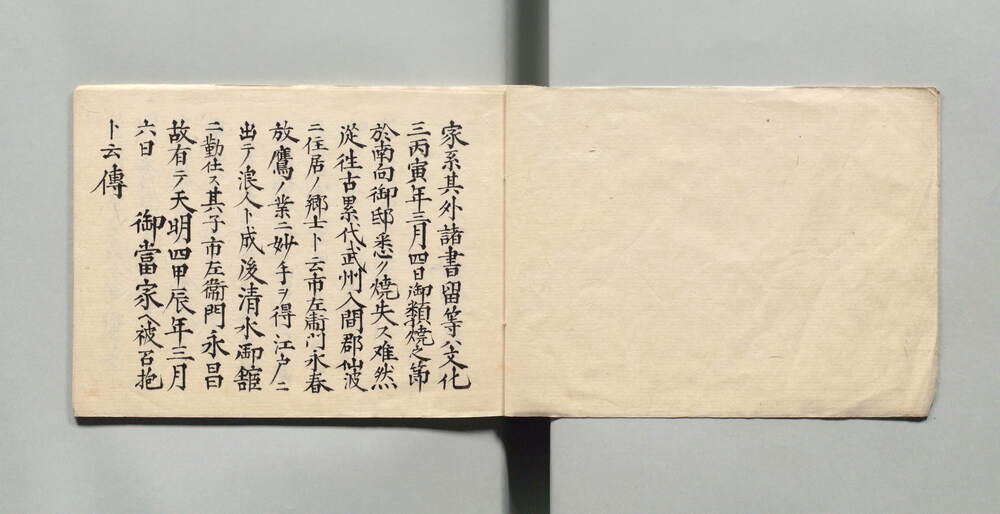 家系其外諸書留等ハ文化
三丙寅年三月四日御類焼之節
於南向御邸悉ク焼失ス难然
従往古累代武州入間郡仙波
ニ住居ノ郷士ト云市左衞門永春
放鷹ノ業ニ妙手ヲ得江戸ニ
出テ浪人ト成後清水御舘
ニ勤仕ス其子市左衞門永昌
故有テ天明四甲辰年三月
六日　御當家ヘ被召抱
ト云傳